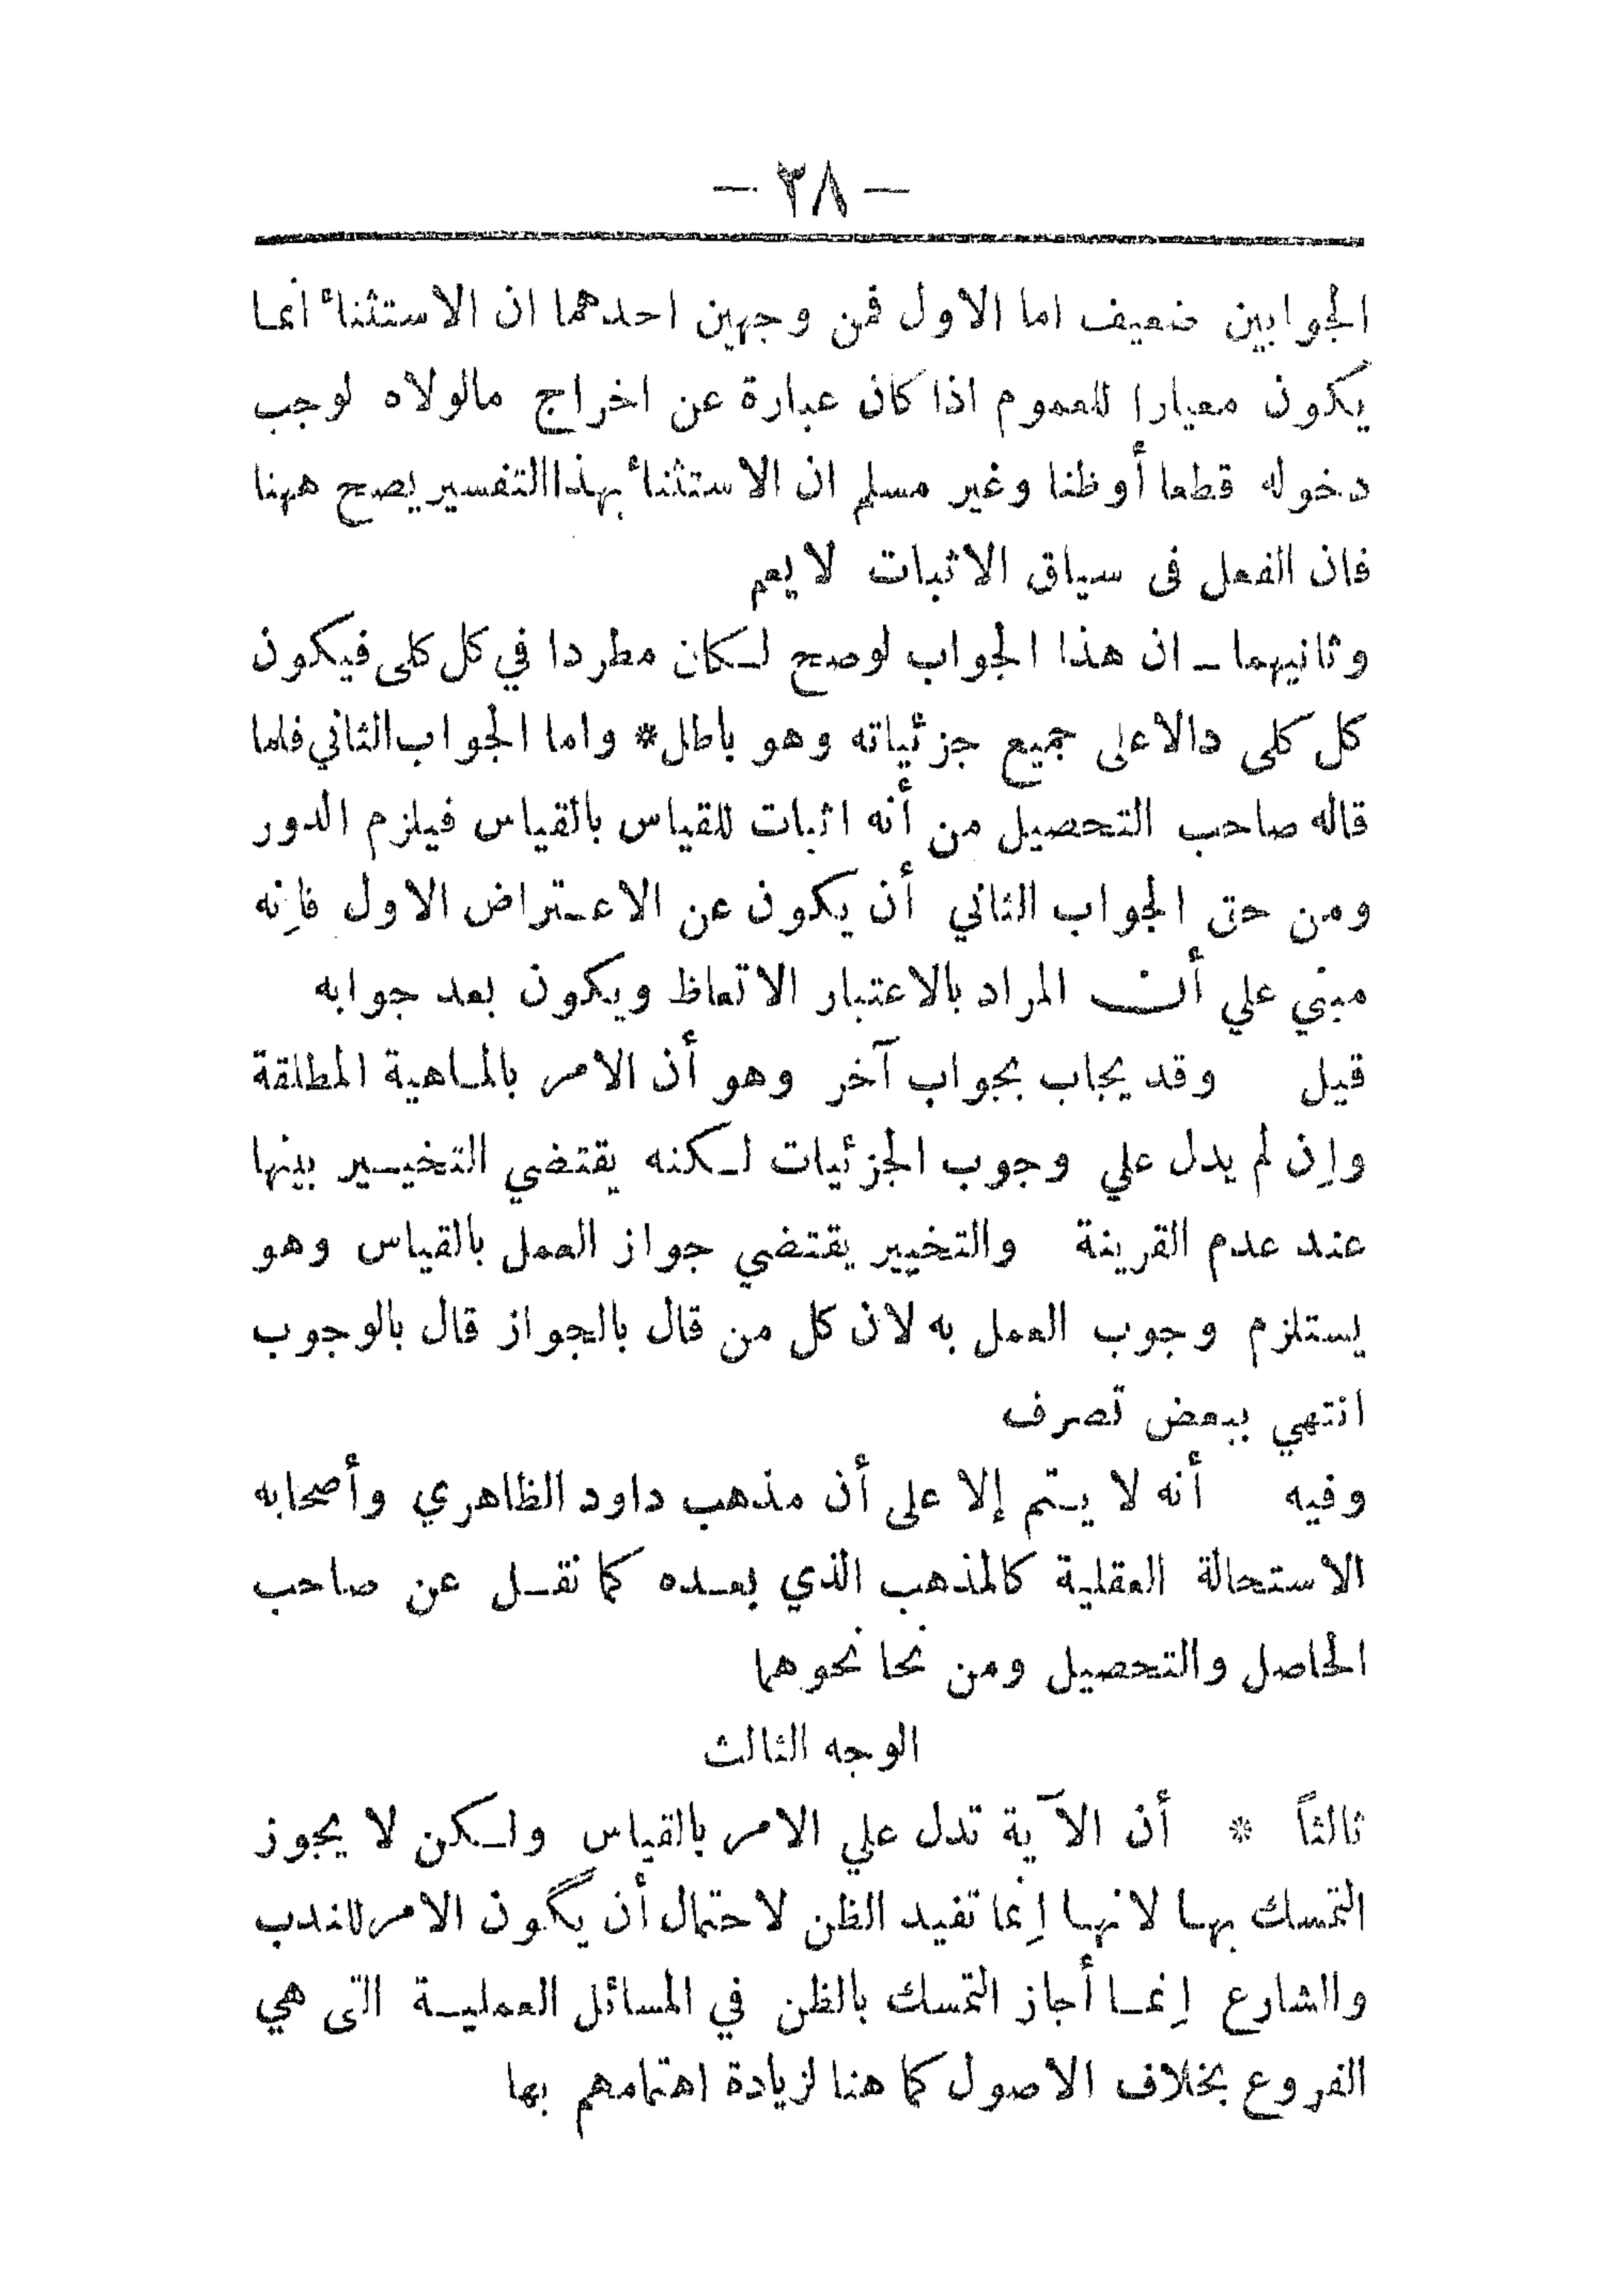 — ٣٨ —
الجوابين ضعيف اما الاول فمن وجهين احدهما ان الاستثناء أنما
يكون معيارا للعموم اذا كان عبارة عن اخراج مالولاه لوجب
دخوله قطعا أوظنا وغير مسلم ان الاستثناء بهذاالتفسير يصح ههنا
فان الفعل فى سياق الاثبات لايعم
وثانيهما ـ ان هذا الجواب لوصح لـكان مطردا في كل كلى فيكون
كل كلى دالاعلى جميع جزئياته وهو باطل* واما الجواب الثاني فلما
قاله صاحب التحصيل من أنه اثبات للقياس بالقياس فيلزم الدور
ومن حق الجواب الثاني أن يكون عن الاعـتراض الاول فإنه
مبني علي أن المراد بالاعتبار الاتعاظ ويكون بعد جوابه
قيل وقد يجاب بجواب آخر وهو أن الامر بالمـاهية المطلقة
وإن لم يدل علي وجوب الجزئيات لـكنه يقتضي التخيـير بينها
عند عدم القرينة والتخيير يقتضي جواز العمل بالقياس وهو
يستلزم وجوب العمل به لان كل من قال بالجواز قال بالوجوب
انتهي ببعض تصرف
وفيه أنه لا يـتم إلا على أن مذهب داود الظاهري وأصحابه
الاستحالة العقلية كالمذهب الذي بعـده كما نقـل عن صاحب
الحاصل والتحصيل ومن نحا نحوهما
الوجه الثالث
ثالثاً * أن الآية تدل علي الامر بالقياس ولـكن لا يجوز
التمسك بهـا لانهـا إنما تفيد الظن لاحتمال أن يكون الامر للندب
والشارع إنمـا أجاز التمسك بالظن في المسائل العمليـة التى هي
الفروع بخلاف الاصول كما هنا لزيادة اهتمامهم بها